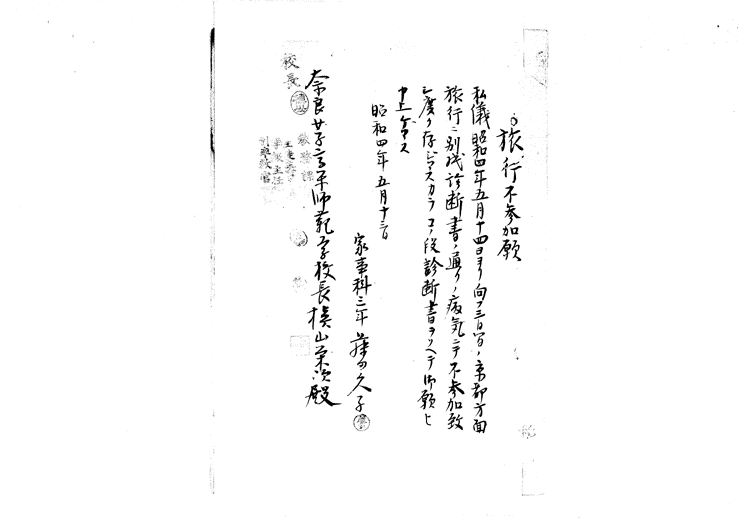 旅行不参加願
私儀昭和四年五月十四日ヨリ向フ三日間、京都方面
旅行ニ別紙診断書ノ通リノ病気ニテ不参加致
度ク存ジマスカラコノ段診断書ヲソヘテ御願ヒ
申上ゲマス
昭和四年五月十三日
家事科三年 久子
奈良女子高等師範学校長槇山栄次殿
校長